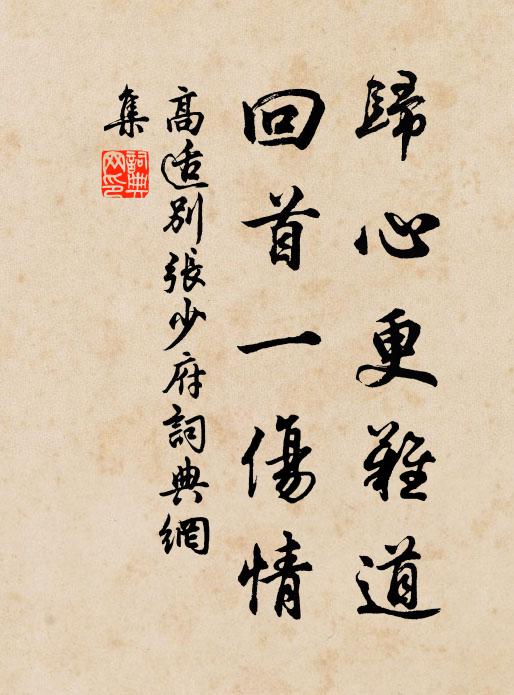 歸心更難道
回首一傷情
高适別張少府詞典網
集
詞典網印